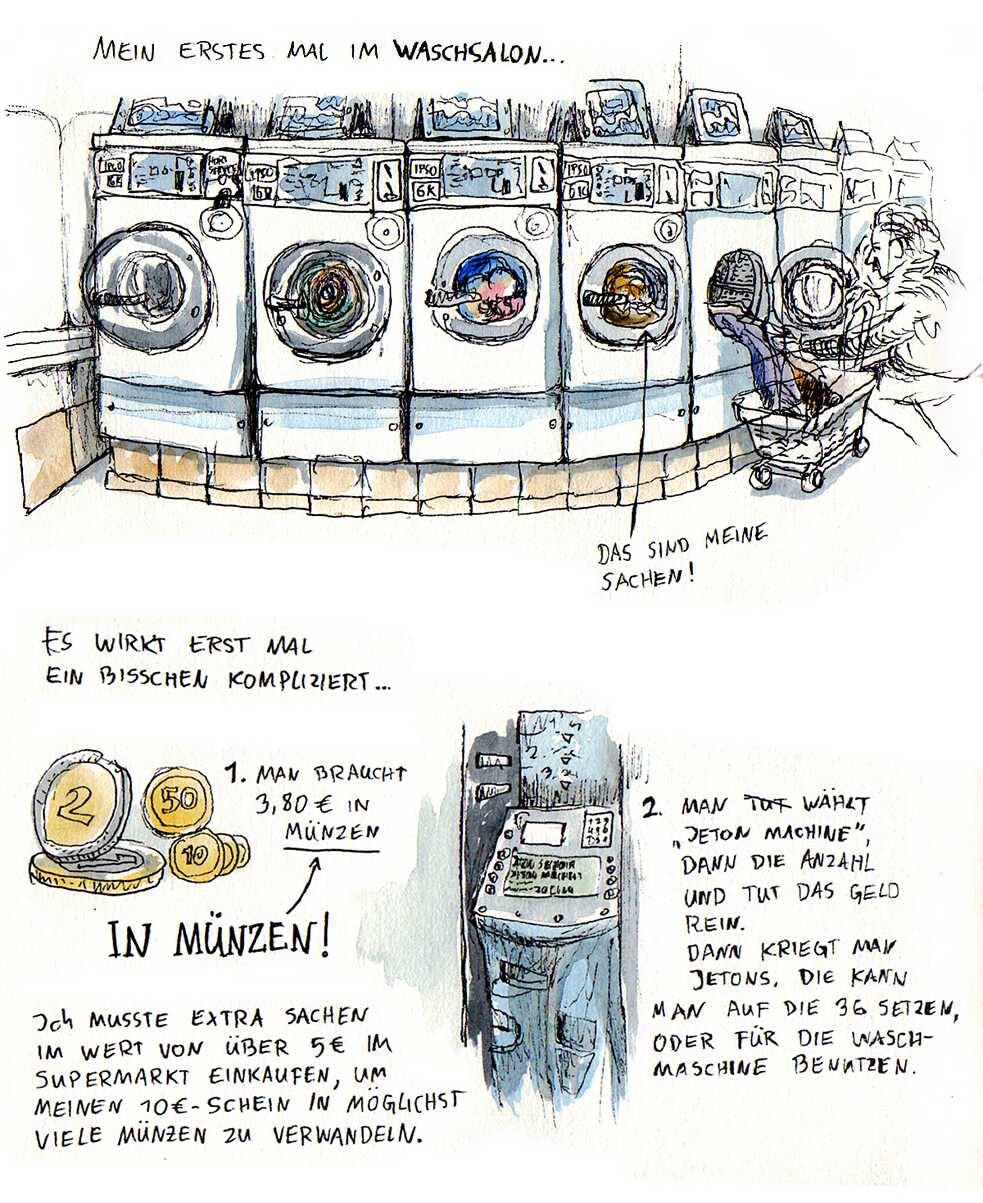 MEIN ERSTES MAL IM WASCHSALON...
IPSO
6K
IPSO
6K
IPSO
6K
IPSO
6K
DAS SIND MEINE
SACHEN!
ES WIRKT ERST MAL
EIN BISSCHEN KOMPLIZIERT...
2
50
10
1. MAN BRAUCHT
3,80 € IN
MÜNZEN
IN MÜNZEN!
ICH MUSSTE EXTRA SACHEN
IM WERT VON ÜBER 5€ IM
SUPERMARKT EINKAUFEN, UM
MEINEN 10€-SCHEIN IN MÖGLICHST
VIELE MÜNZEN ZU VERWANDELN.
1.
2.
3.
2. MAN TUT WÄHLT
„JETON MACHINE",
DANN DIE ANZAHL
UND TUT DAS GELD
REIN.
DANN KRIEGT MAN
JETONS, DIE KANN
MAN AUF DIE 36 SETZEN,
ODER FÜR DIE WASCH-
MASCHINE BENUTZEN.